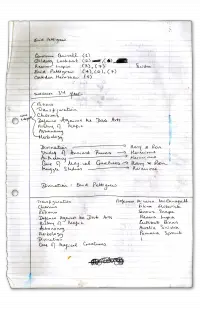 Quirinus Quirrell (1)
Gilderoy Lockhart (2)
Remus Lupin (3), (*)
(*), (2), (*)
SUBJECTS 3rd Year
Potions
Transfiguration
Charms
Defence Against the Dark Arts
History of Magic
Astronomy
Herbology
Divination Harry & Ron
Study of Ancient Runes Hermione
Arithmancy Hermione
Care of Magical Creatures Harry & Ron
Muggle Studies Hermione
Divination :
Transfiguration Minerva McGonagall
Charms Filius Flitwick
Potions Severus Snape
Defence Against the Dark Arts Remus Lupin
History of Magic Cuthbert Binns
Astronomy Aurora Sinistra
Herbology Pomona Sprout
Divination
Care of Magical Creatures